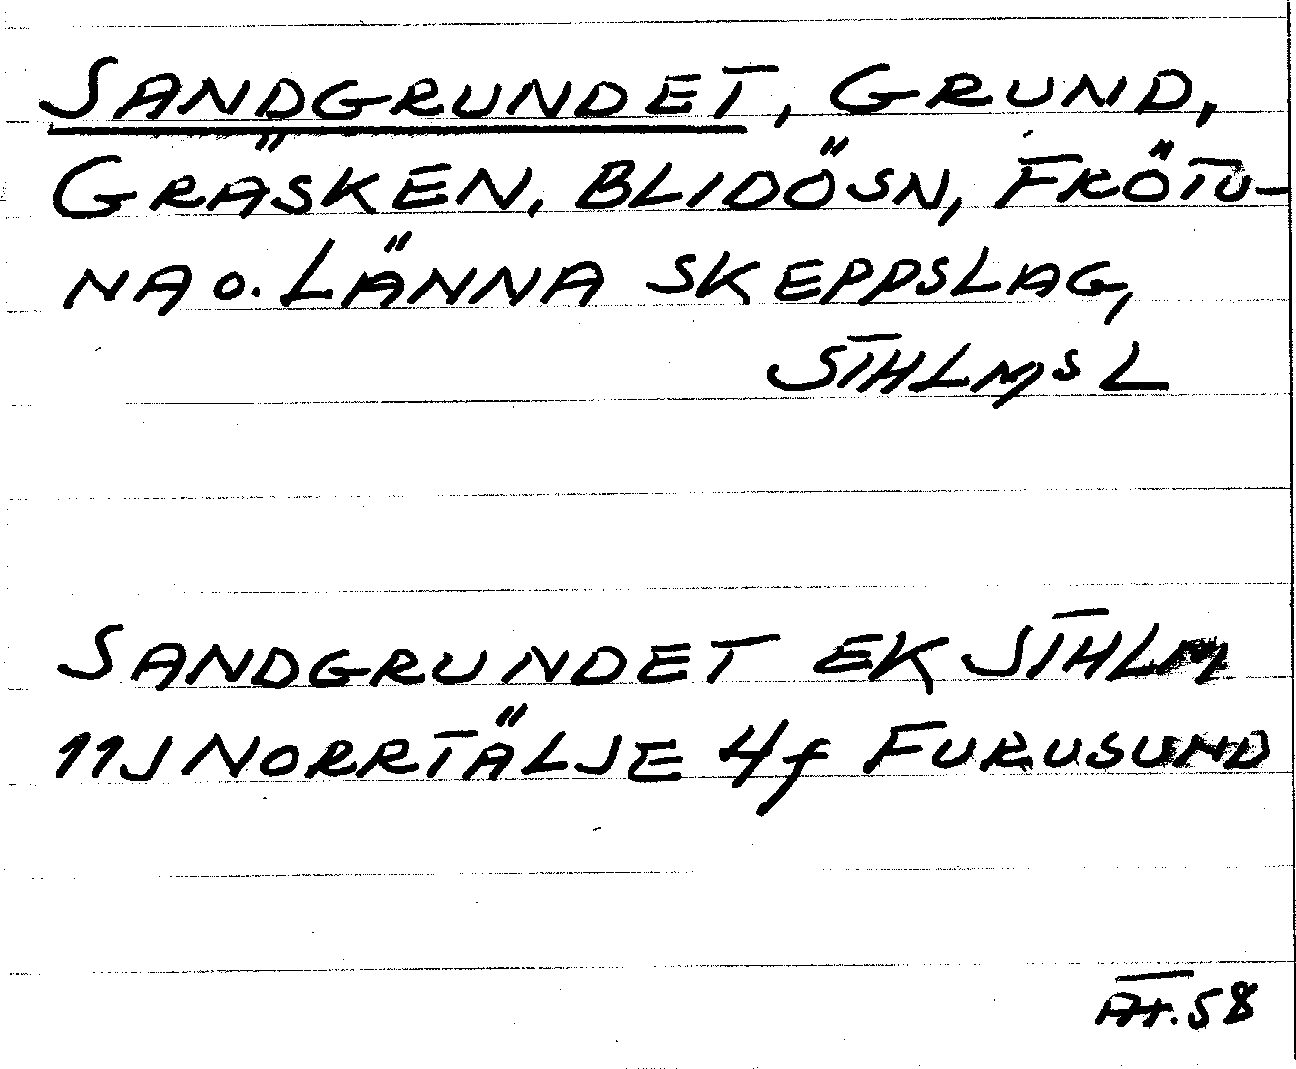 SANDGRUNDET, GRUND,
GRÄSKEN, BLIDÖSN, FRÖTU-
NA o. LÄNNA SKEPPSLAG,
STHLMS L
SANDGRUNDET EK STHLM
11J NORRTÄLJE 4f FURUSUND
58